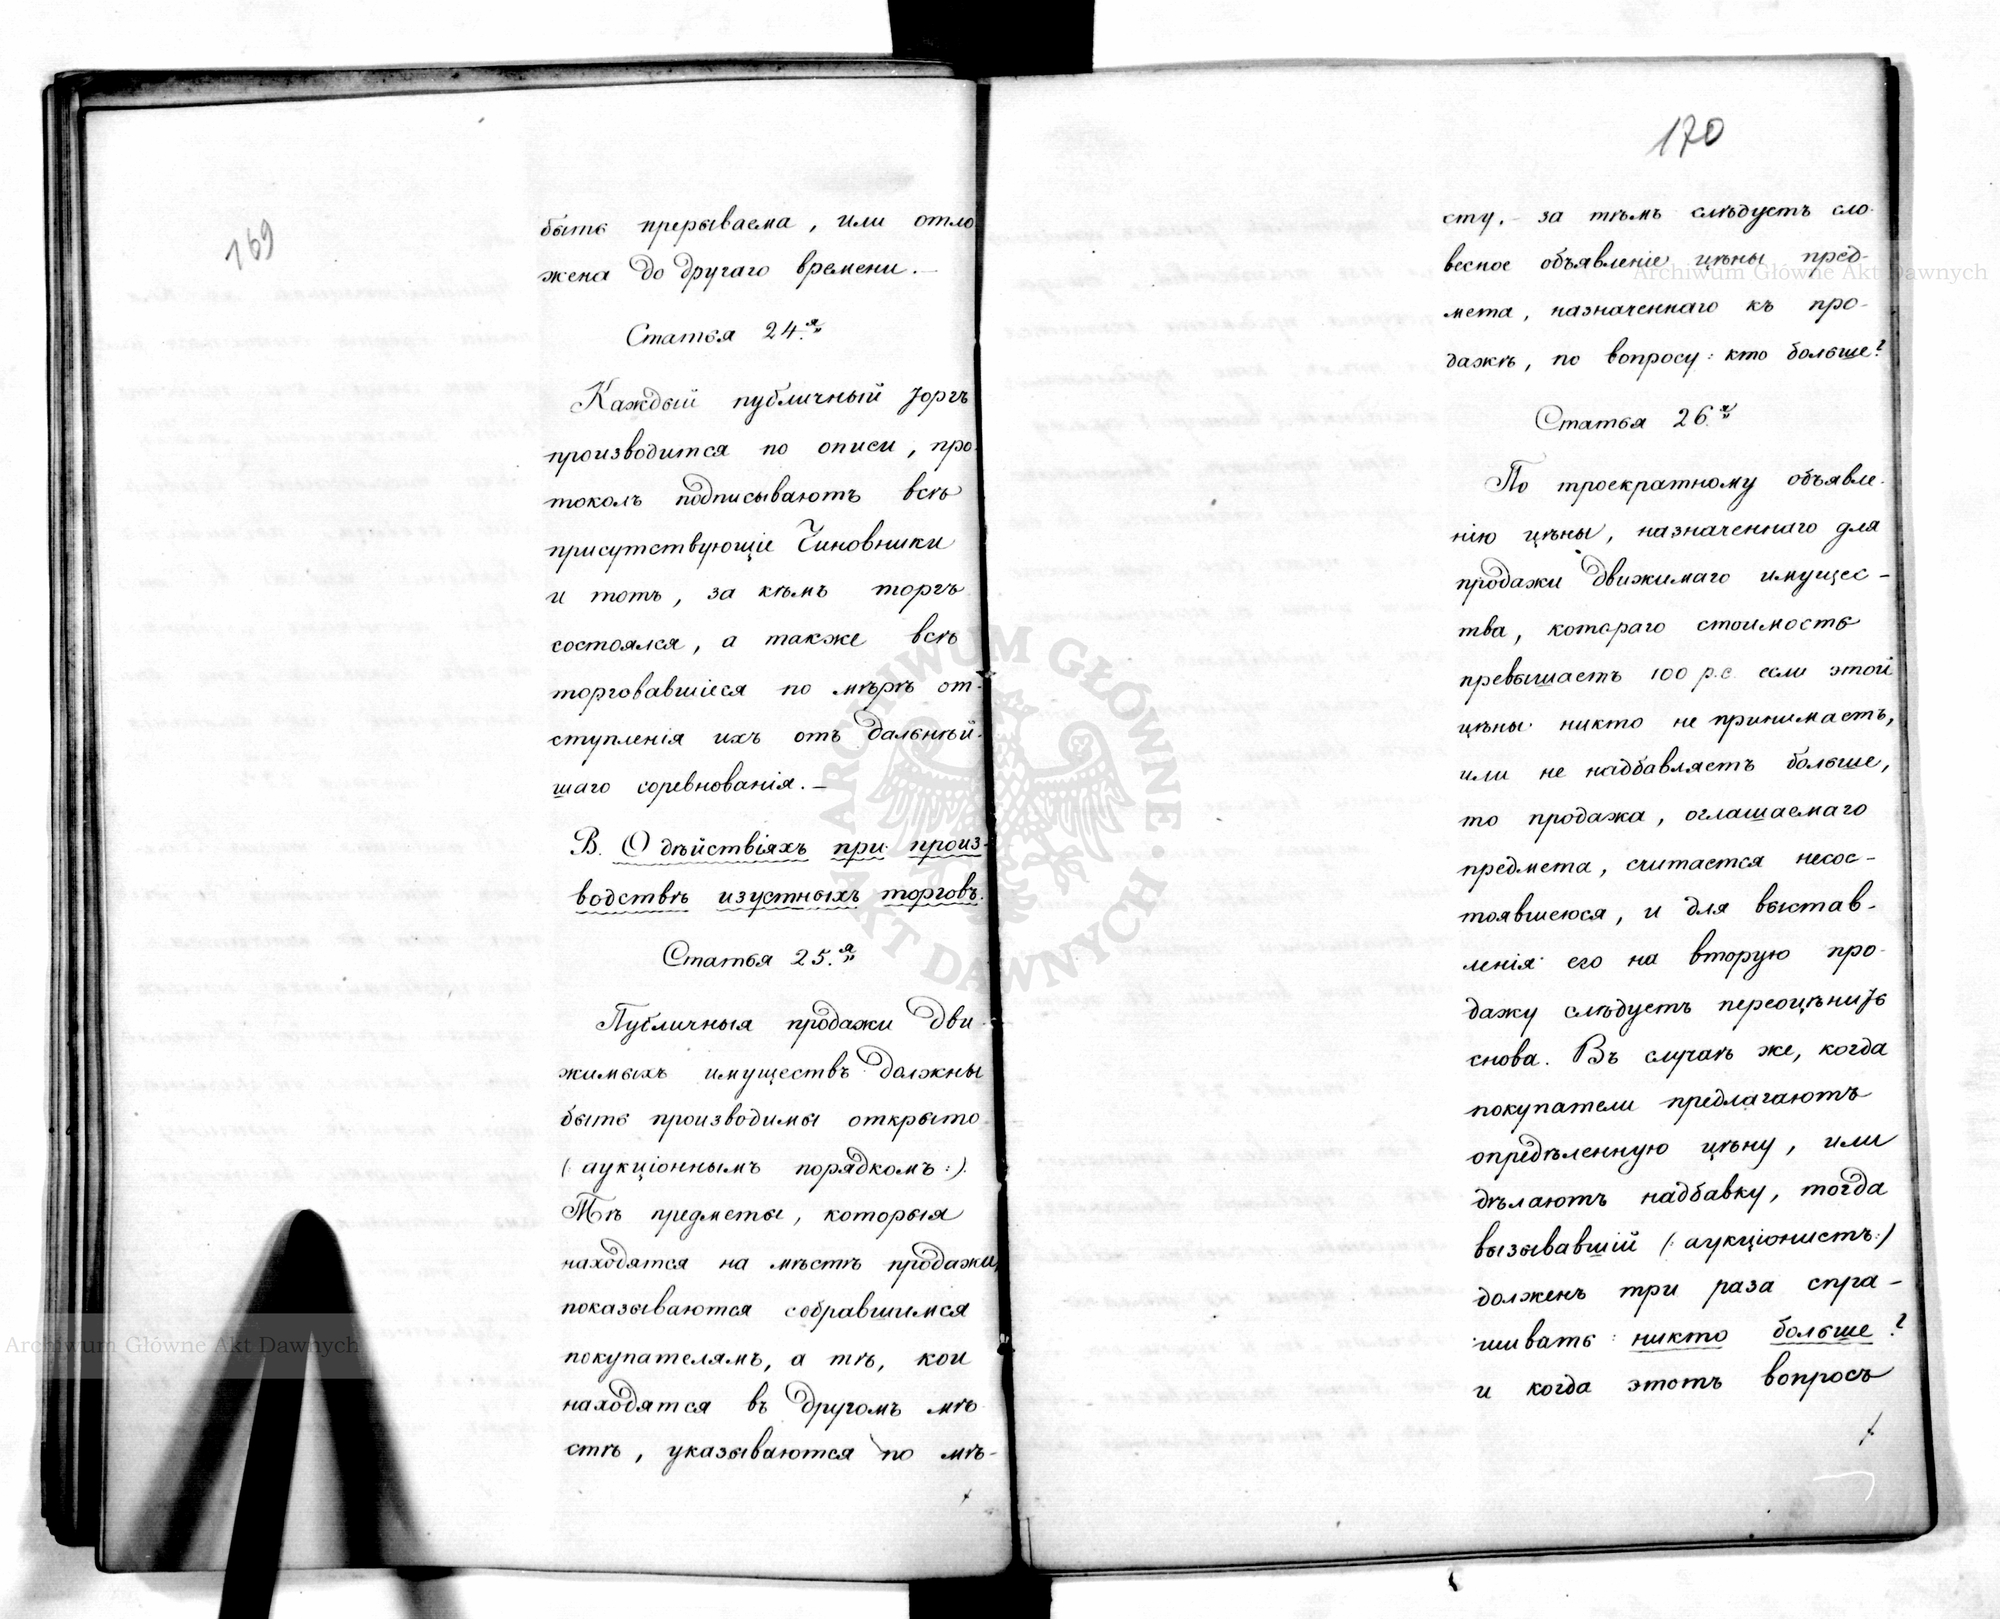 169
быть прерываема, или отло
жена до другаго времени. —
Статья 24.я
Каждый публичный торгъ
производится по описи, про-
токолъ подписываютъ всѣ
присутствующіе Чиновники
и тотъ, за кѣмъ торгъ
состоялся, а также всѣ
торговавшіеся по мѣрѣ от-
ступленія ихъ отъ дальнѣй-
шаго соревнованія. —
В. О дѣйствіяхъ при произ-
водствѣ изустныхъ торговъ.
Статья 25.я
Публичныя продажи дви-
жимыхъ имуществъ должны
быть производимы открыто
(: аукціоннымъ порядкомъ :).
Тѣ предметы, которыя
находятся на мѣстѣ продажи,
показываются собравшимся
покупателямъ, а тѣ, кои
находятся въ другомъ мѣ
стѣ, указываются по мѣ-
170
сту. — за тѣмъ слѣдуетъ сло-
весное объявленіе цѣны пред-
мета, назначеннаго къ про-
дажѣ, по вопросу: кто больше?
Статья 26.я
По троекратному объявле-
нію цѣны, назначеннаго для
продажи движимаго имущес-
тва, котораго стоимость
превышаетъ 100 р.с. если этой
цѣны никто не принимаетъ,
или не надбавляетъ больше,
то продажа, оглашаемаго
предмета, считается несос-
тоявшеюся, и для выстав-
ленія его на вторую про-
дажу слѣдуетъ переоцѣнить
снова. Въ случаѣ же, когда
покупатели предлагаютъ
опредѣленную цѣну, или
дѣлаютъ надбавку, тогда
вызывавшій (: аукціонистъ :)
долженъ три раза спра-
шивать: никто больше?
и когда этотъ вопросъ
Archiwum Główne Akt Dawnych
Archiwum Główne Akt Dawnych
ARCHIWUM GŁÓWNE • AKT DAWNYCH •